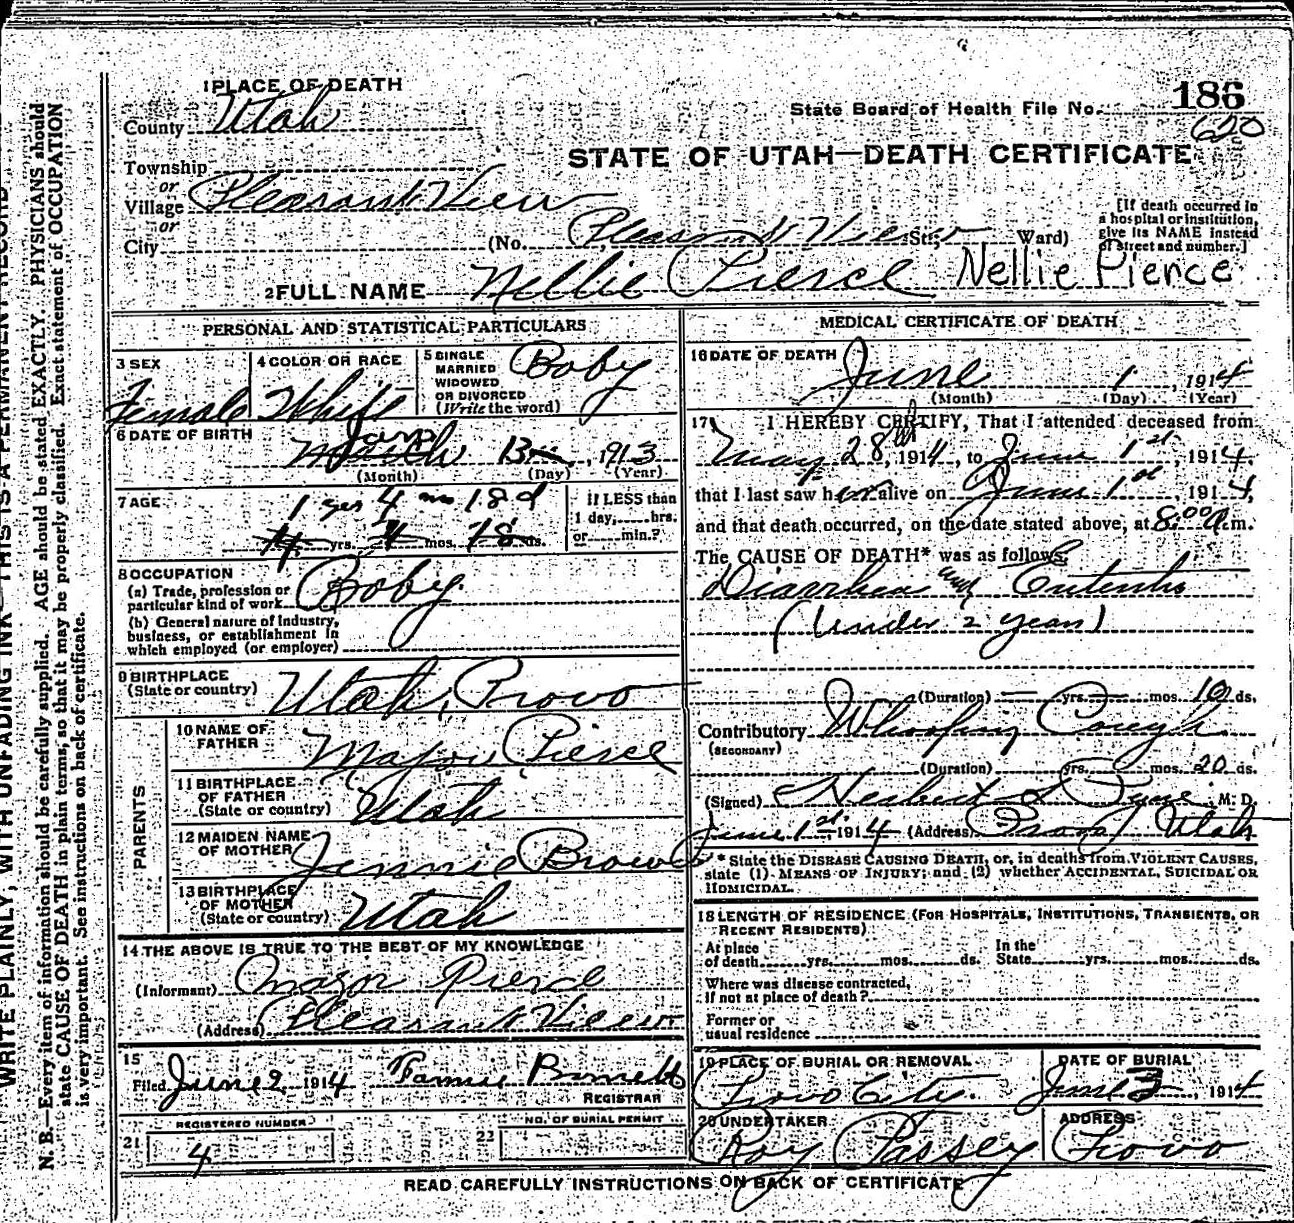 WRITE PLAINLY, WITH UNFADING INK—THIS IS A PERMANENT RECORD
N. B.—Every item of information should be carefully supplied. AGE should be stated EXACTLY. PHYSICIANS should
state CAUSE OF DEATH in plain terms, so that it may be properly classified. Exact statement of OCCUPATION
is very important. See instructions on back of certificate.
1 PLACE OF DEATH
County Utah
State Board of Health File No. 186
620
STATE OF UTAH—DEATH CERTIFICATE
Township
or
Village Pleasant View
or
City (No. Pleasant View St; Ward)
[If death occurred in
a hospital or institution,
give its NAME instead
of street and number.]
2 FULL NAME Nellie Pierce Nellie Pierce
PERSONAL AND STATISTICAL PARTICULARS
3 SEX Female
4 COLOR OR RACE White
5 SINGLE
MARRIED
WIDOWED
OR DIVORCED
(Write the word)
Baby
6 DATE OF BIRTH
March Jan 13, 1913
(Month) (Day) (Year)
7 AGE
1 yrs 4 ms 18 d
yrs. 4 mos. 18 ds.
if LESS than
1 day, hrs.
or min.?
8 OCCUPATION
(a) Trade, profession or
particular kind of work Baby
(b) General nature of Industry,
business, or establishment in
which employed (or employer)
9 BIRTHPLACE
(State or country) Utah, Provo
PARENTS
10 NAME OF
FATHER Major Pierce
11 BIRTHPLACE
OF FATHER
(State or country) Utah
12 MAIDEN NAME
OF MOTHER Jennie Brown
13 BIRTHPLACE
OF MOTHER
(State or country) Utah
14 THE ABOVE IS TRUE TO THE BEST OF MY KNOWLEDGE
(Informant) Major Pierce
(Address) Pleasant View
15
Filed June 2 1914
REGISTRAR
REGISTERED NUMBER
21 4
NO. OF BURIAL PERMIT
22
MEDICAL CERTIFICATE OF DEATH
16 DATE OF DEATH
June 1, 1914
(Month) (Day) (Year)
17 I HEREBY CERTIFY, That I attended deceased from
May 28th, 1914, to June 1st, 1914,
that I last saw her alive on June 1st, 1914,
and that death occurred, on the date stated above, at 8:00 a.m.
The CAUSE OF DEATH* was as follows:
Diarrhea and Enteritis
(Under 2 years)
(Duration) yrs. mos. 10 ds.
Contributory Whooping Cough
(SECONDARY)
(Duration) yrs. mos. 20 ds.
(Signed) Herbert S Pyne, M. D.
June 1st, 1914 (Address) Provo, Utah
* State the DISEASE CAUSING DEATH, or, in deaths from VIOLENT CAUSES,
state (1) MEANS OF INJURY; and (2) whether ACCIDENTAL, SUICIDAL OR
HOMICIDAL.
18 LENGTH OF RESIDENCE (FOR HOSPITALS, INSTITUTIONS, TRANSIENTS, OR
RECENT RESIDENTS)
At place
of death yrs. mos. ds.
In the
State yrs. mos. ds.
Where was disease contracted,
if not at place of death?
Former or
usual residence
19 PLACE OF BURIAL OR REMOVAL
Provo City.
DATE OF BURIAL
June 3, 1914
20 UNDERTAKER
Roy Passey
ADDRESS
Provo
READ CAREFULLY INSTRUCTIONS ON BACK OF CERTIFICATE